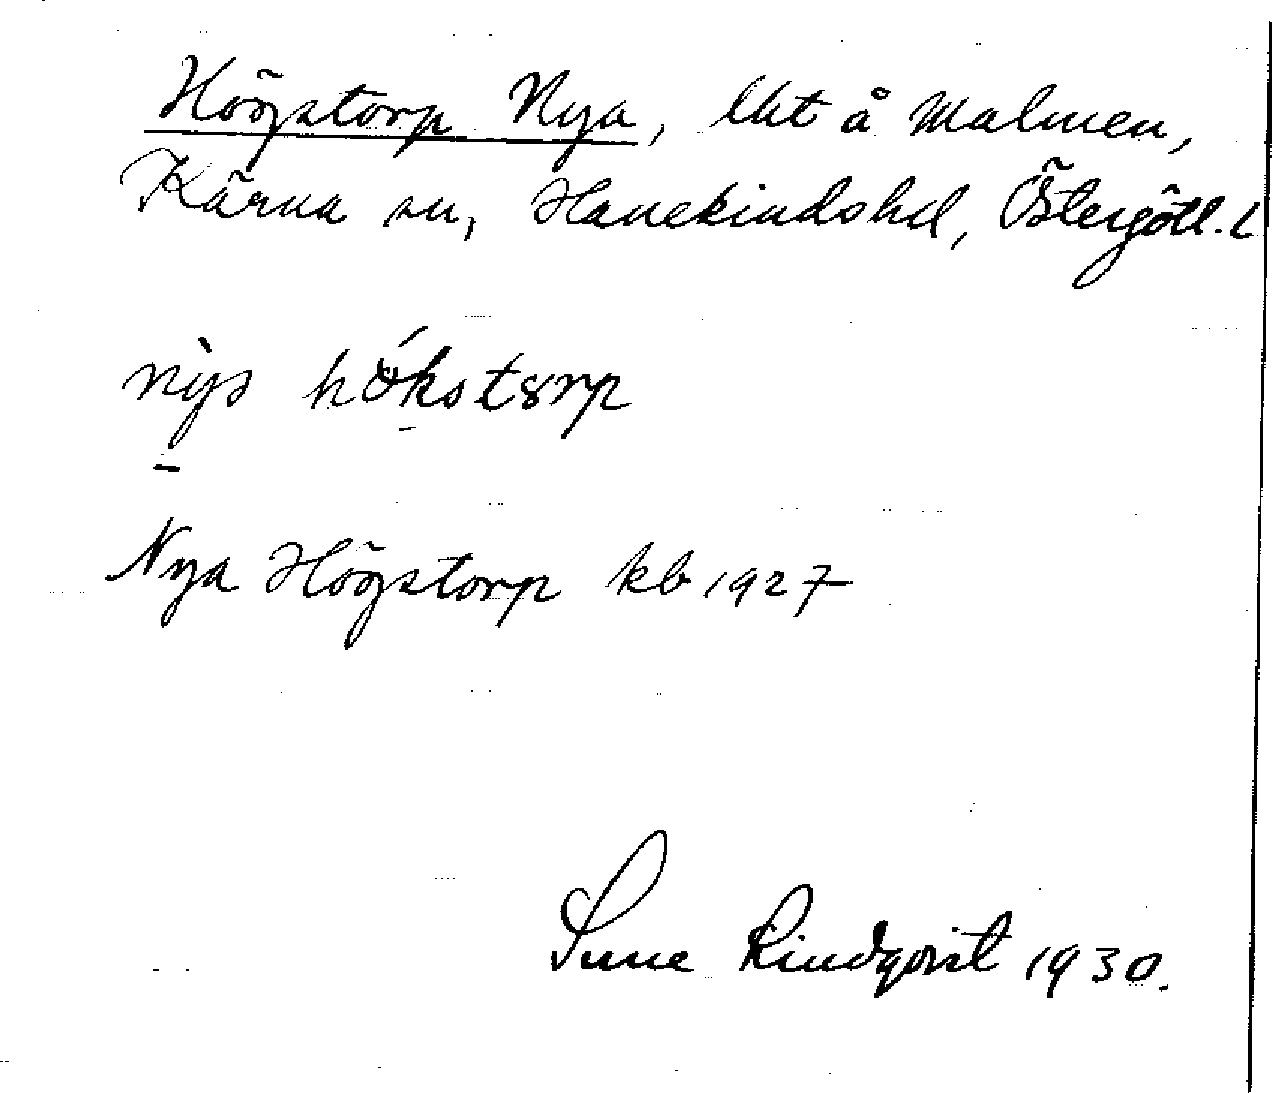 Högstorp Nya, lht å Malmen,
Kärna sn, Hanekindshd, Östergötl. l
nys hökstorp
Nya Högstorp kb 1927
Sune Lindqvist 1930.